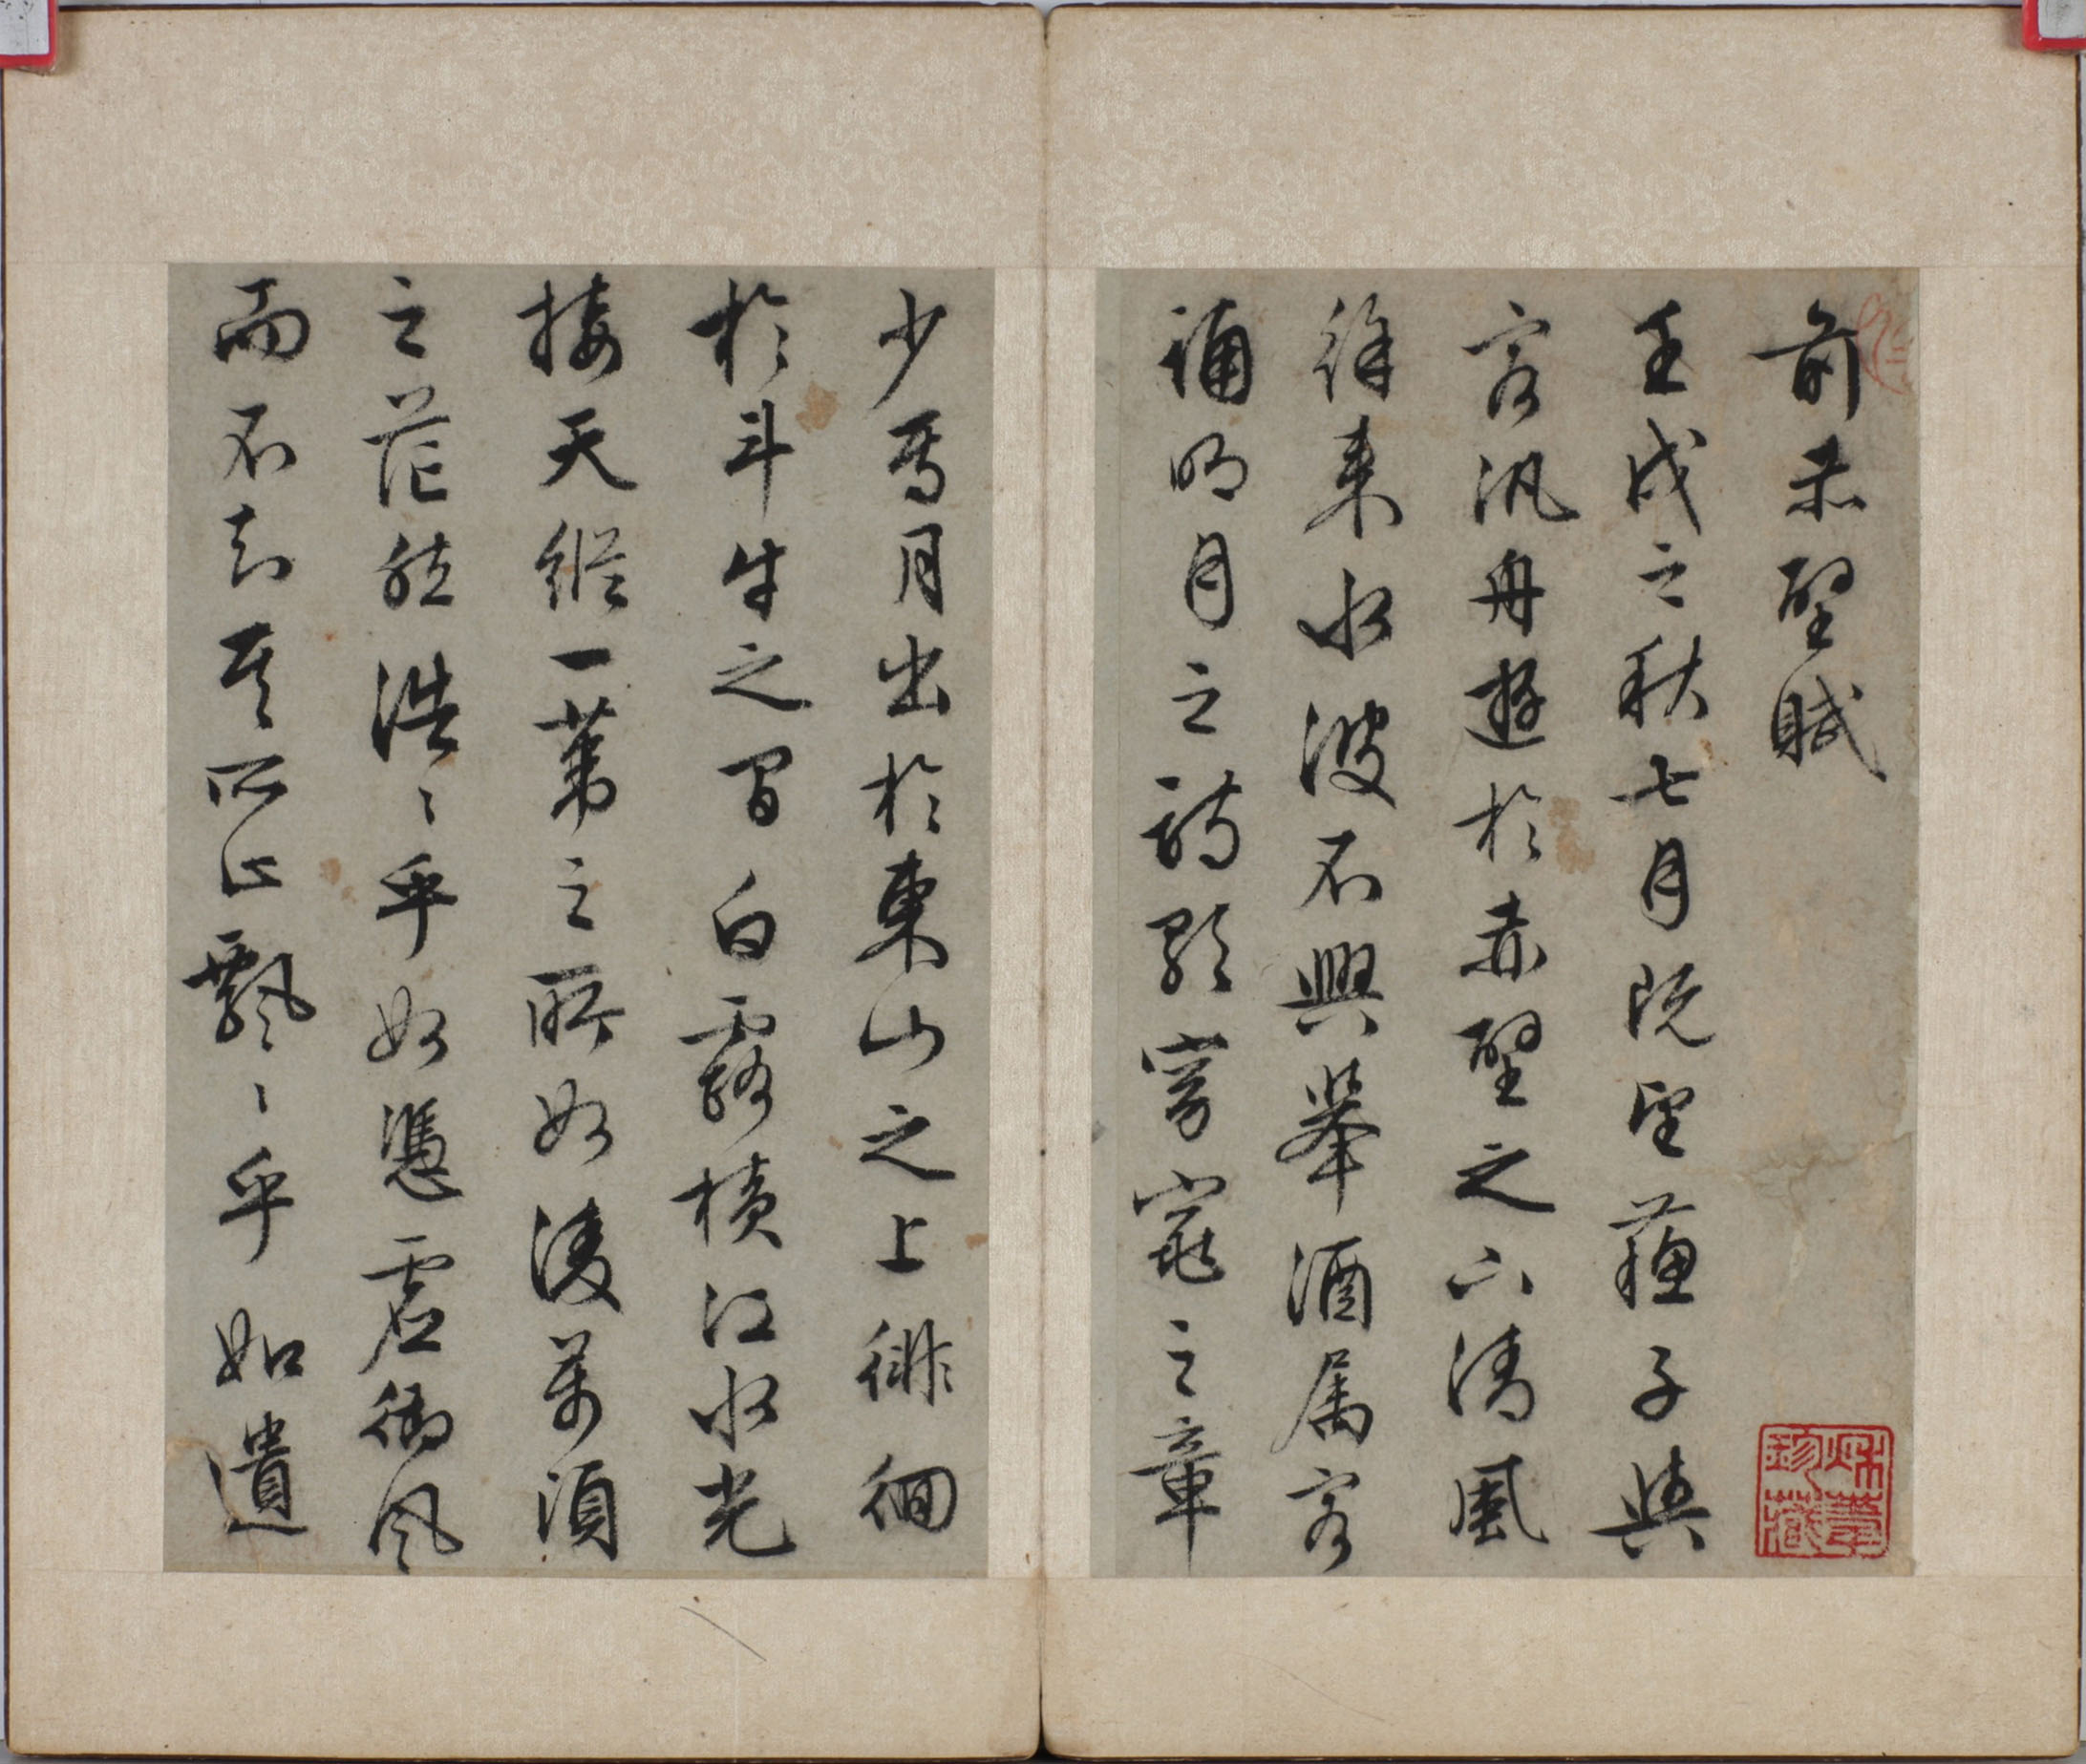 前赤壁賦
壬戌之秋七月既望蘇子與
客汎舟遊於赤壁之下清風
徐来水波不興舉酒属客
誦明月之詩歌窈窕之章
少焉月出於東山之上徘徊
於斗牛之間白露横江水光
接天縱一葦之所如凌萬頃
之茫然浩〻乎如憑虚御風
而不知其所止飄〻乎如遺
珍藏